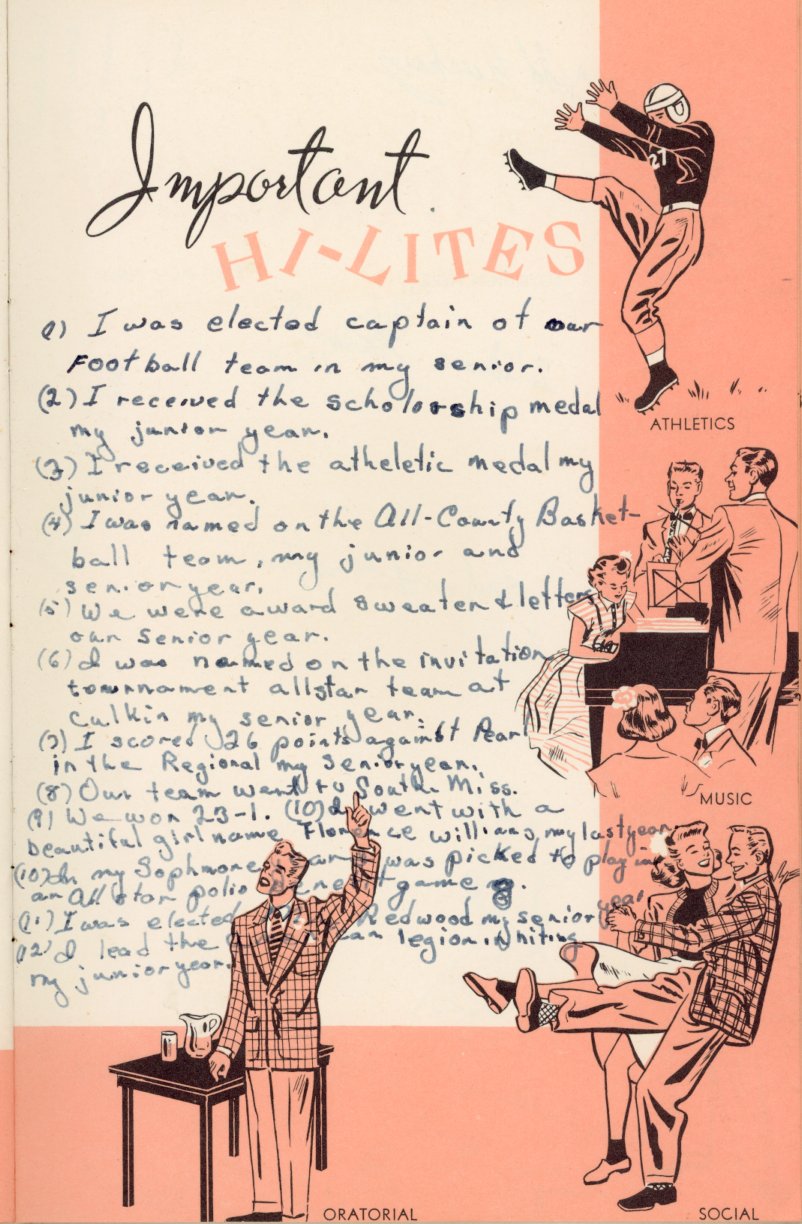 Important
HI-LITES
(1) I was elected captain of our
Football team in my senior.
(2) I received the scholorship medal
my junior year.
(3) I received the atheletic medal my
junior year.
(4) I was named on the All-County Basket-
ball team, my junior and
senior year.
(5) We were award sweater & letters
our senior year.
(6) I was named on the invitation
tournament allstar team at
Culkin my senior year.
(7) I scored 26 points against Pearl
in the Regional my senior year.
(8) Our team went to South Miss.
(9) We won 23-1. (10) I went with a
beautiful girl name Florence williams, my last year
(10) In my Sophmore I was picked to play in
an All star polio benefit game
(11) I was elected Redwood my senior year
(12) I lead the legion in hiting
my junior year.
27
ATHLETICS
MUSIC
ORATORIAL
SOCIAL